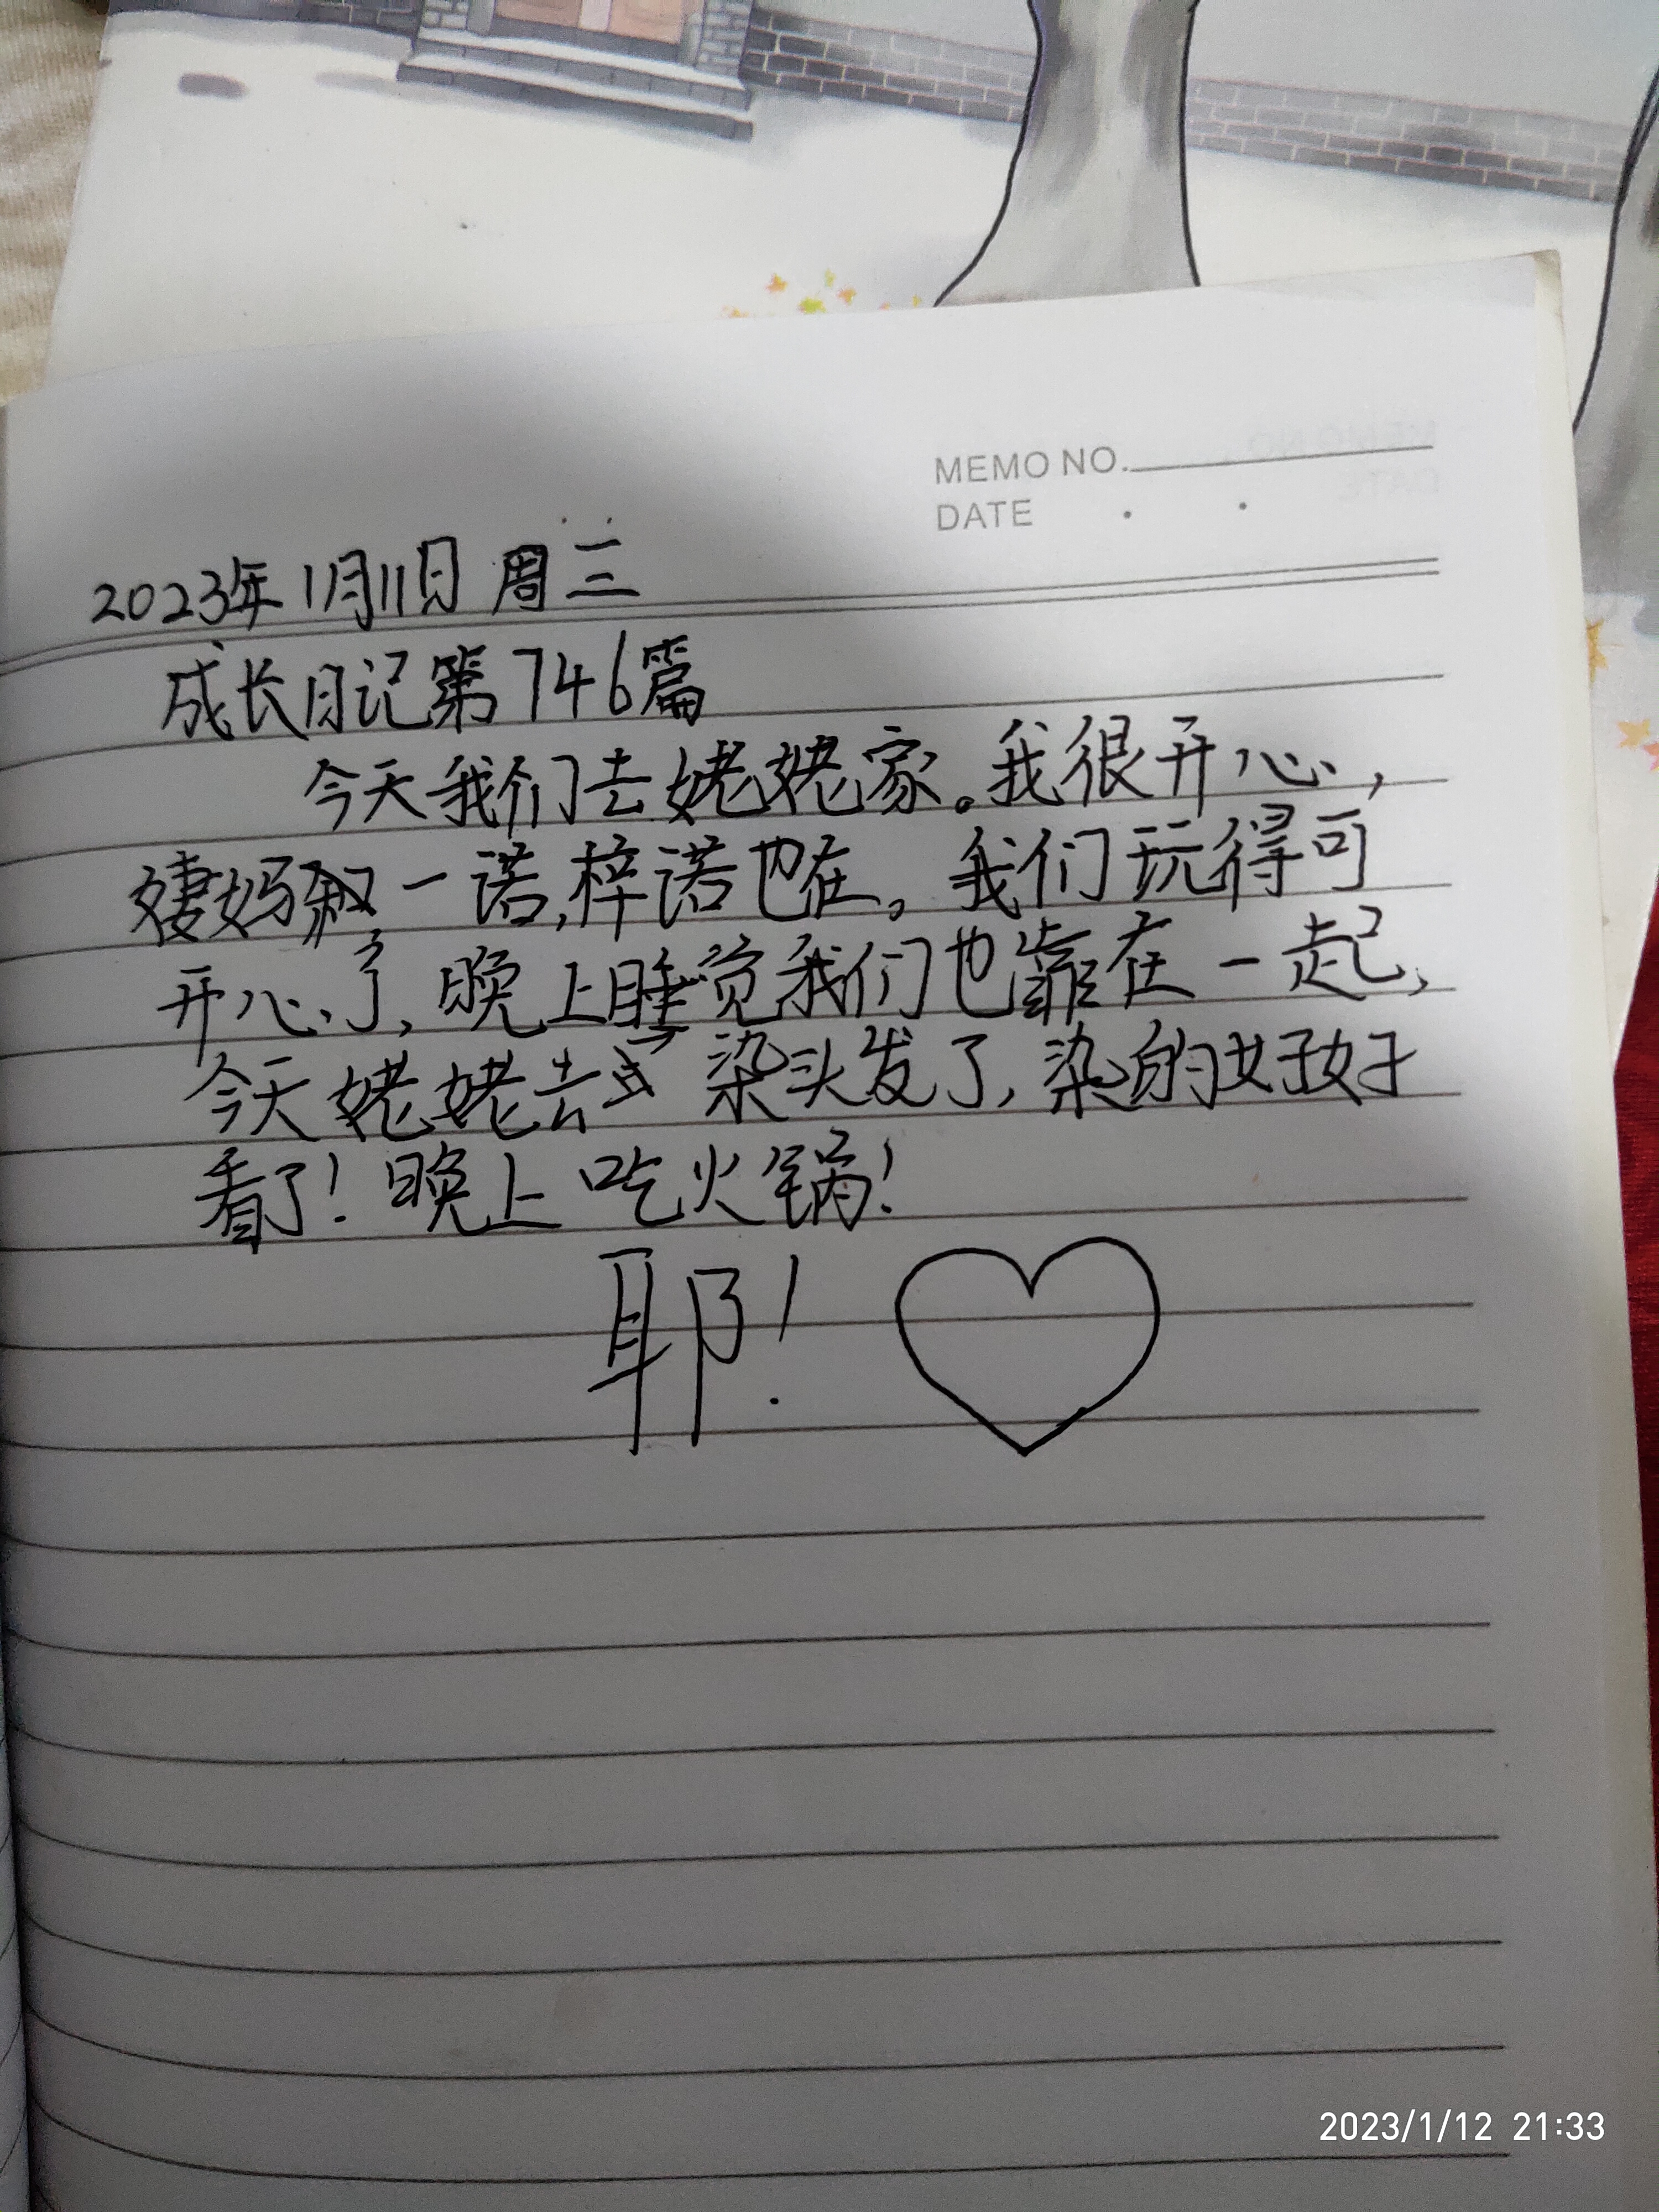 MEMO NO.
DATE
2023年1月11日 周三
成长日记第746篇
今天我们去姥姥家。我很开心,
妈 一诺,梓诺也在。我们玩得可
开心了,晚上睡觉我们也靠在一起,
今天姥姥去 染头发了,染的好好
看了!晚上吃火锅!
耶!
2023/1/12 21:33